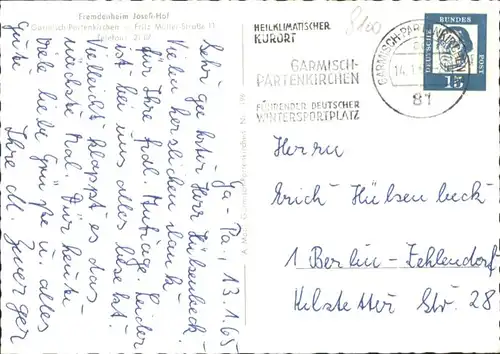 Fremdenheim Josefi-Hof
Garmisch-Partenkirchen - Fritz Müller-Straße 11
Telefon: 21 07
Ga-Pa., 13.1.65
Sehr geehrter Herr Hülsenbeck!
Vielen herzlichen Dank
für Ihre frdl. Anfrage. Leider
ist bei uns alles besetzt.
Vielleicht klappt es das
nächste Mal. Für heute
viele liebe Grüße u. alles
Gute
Ihre M. Zwerger
HEILKLIMATISCHER
KURORT
GARMISCH-
PARTENKIRCHEN
FÜHRENDER DEUTSCHER
WINTERSPORTPLATZ
8100
GARMISCH-PARTENKIRCHEN
14.1.
81
DEUTSCHE
BUNDES
POST
15
Herrn
Erich Hülsenbeck
1 Berlin-Zehlendorf
Kelstetter Str. 28